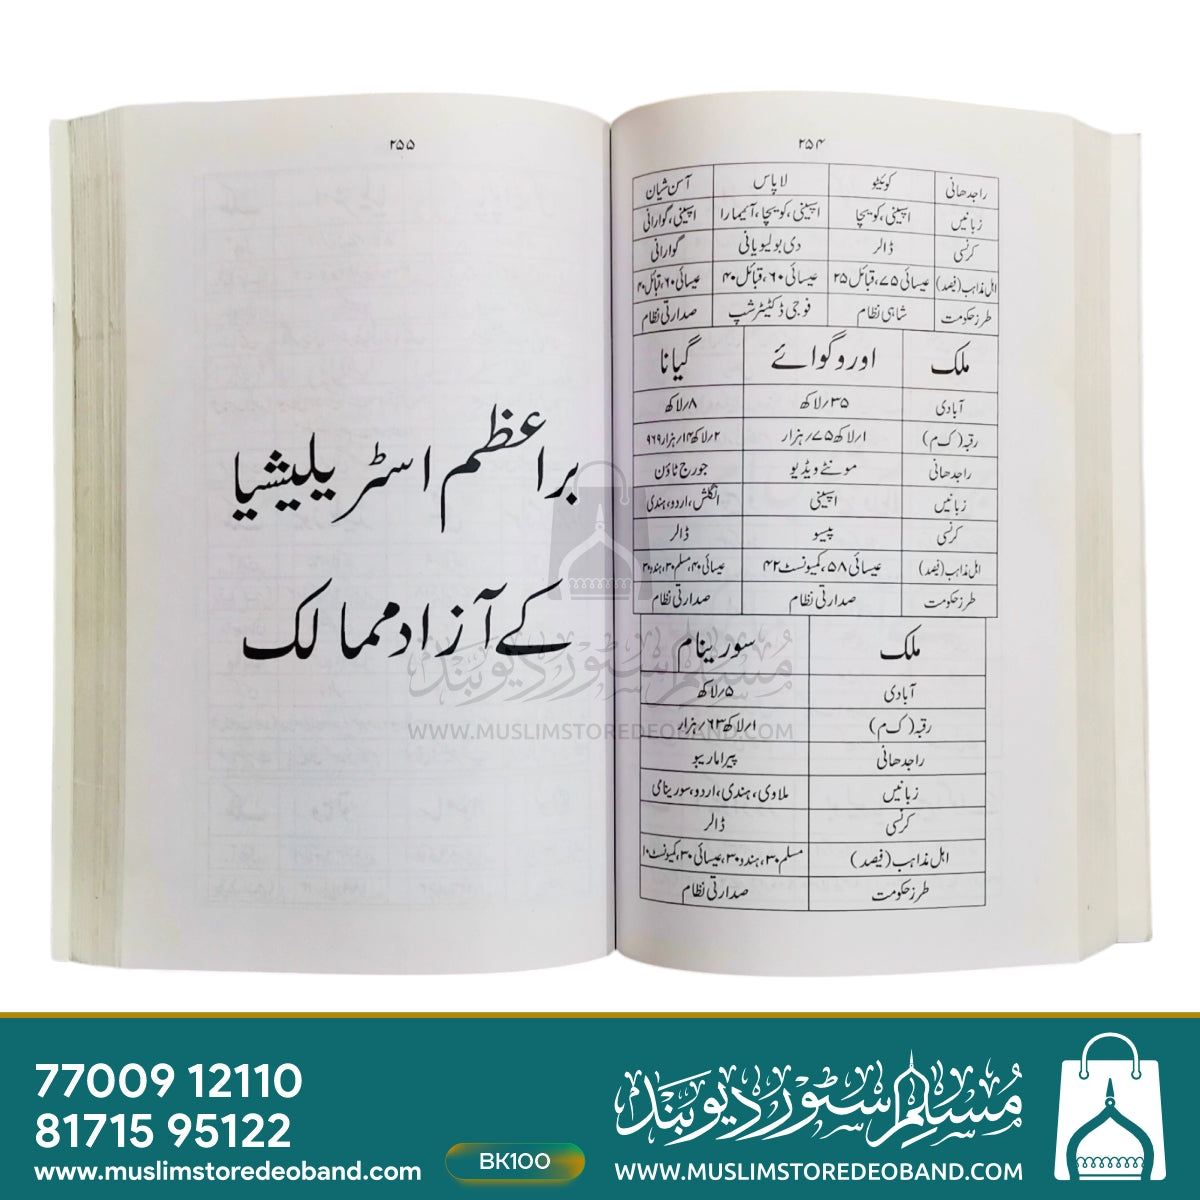 ۲۵۴
راجدھانی کوئیٹو لاپاس آسن شیان
زبانیں اسپینی، کویچا اسپینی، کویچا، آئیمارا اسپینی، گوارانی
کرنسی ڈالر دی بولیویانی گوارانی
اہل مذاہب (فیصد) عیسائی ۷۵، قبائل ۲۵ عیسائی ۶۰، قبائل ۴۰ عیسائی ۶۰، قبائل ۴۰
طرز حکومت شاہی نظام فوجی ڈکٹیٹر شپ صدارتی نظام
ملک اوروگوائے گیانا
آبادی ۳۵؍لاکھ ۸؍لاکھ
رقبہ (ک م) ۱؍لاکھ ۷۵؍ہزار ۲؍لاکھ ۱۴؍ہزار ۹۶۹
راجدھانی مونٹے ویڈیو جورج ٹاؤن
زبانیں اسپینی انگلش، اردو، ہندی
کرنسی پیسو ڈالر
اہل مذاہب (فیصد) عیسائی ۵۸، کمیونسٹ ۴۲ عیسائی ۴۰، مسلم ۳۰، ہندو ۳۰
طرز حکومت صدارتی نظام صدارتی نظام
ملک سورینام
آبادی ۵؍لاکھ
رقبہ (ک م) ۱؍لاکھ ۶۳؍ہزار
راجدھانی پیراماریبو
زبانیں ملاوی، ہندی، اردو، سورینامی
کرنسی ڈالر
اہل مذاہب (فیصد) مسلم ۳۰، ہندو ۳۰، عیسائی ۳۰، کمیونسٹ ۱۰
طرز حکومت صدارتی نظام
۲۵۵
براعظم اسٹریلیشیا
کے آزاد ممالک
مسلم سٹور دیوبند
WWW.MUSLIMSTOREDEOBAND.COM
77009 12110
81715 95122
www.muslimstoredeoband.com
BK100
مسلم سٹور دیوبند
WWW.MUSLIMSTOREDEOBAND.COM